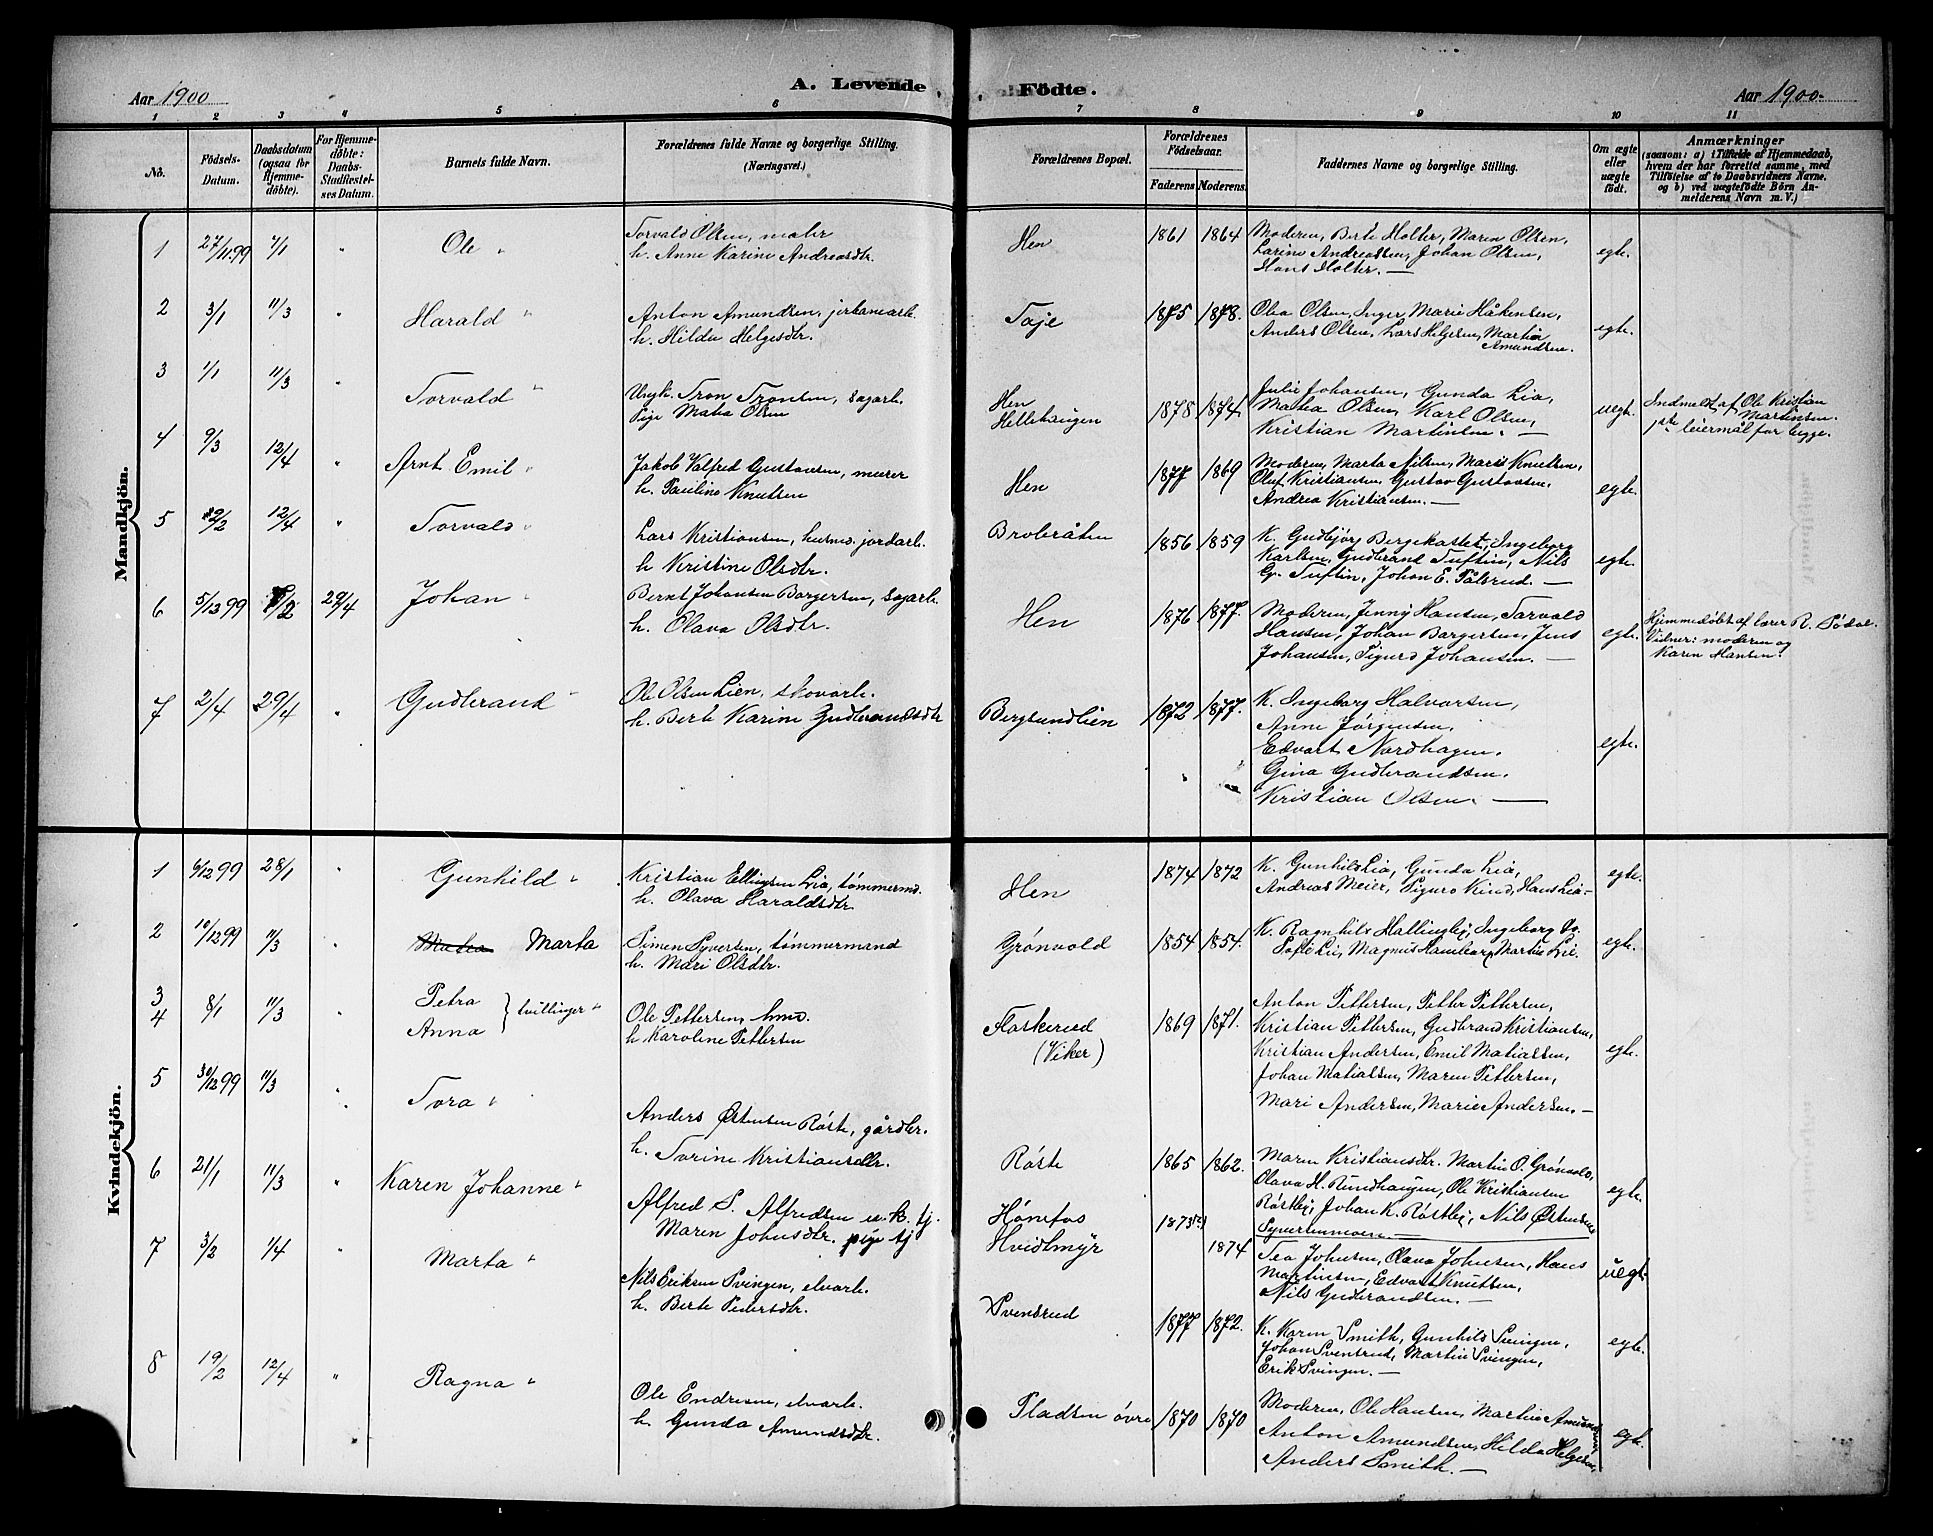 Aar 1900
A. Levende
Födte.
Aar 1900.
1 2 3 4 5 6 7 8 9 10 11
No.
Födsels-
Datum.
Daabsdatum
(ogsaa for
Hjemme-
döbte).
For Hjemme-
döbte:
Daabs-
Stadfæstel-
ses Datum.
Barnets fulde Navn.
Forældrenes fulde Navne og borgerlige Stilling.
(Næringsvei.)
Forældrenes Bopæl.
Forældrenes
Födselsaar.
Faderens Moderens.
Faddernes Navne og borgerlige Stilling.
Om ægte
eller
uægte
födt.
Anmærkninger
(saasom: a) i Tilfælde af Hjemmedaab,
hvem der har forrettet samme, med
Tilföielse af to Daabsvidners Navne,
og b) ved uægtefödte Börn An-
melderens Navn m. V.)
Mandkjön.
1 27/11 99 7/1 " Ole "
Torvald Olsen, maler
h. Anne Karine Andreasdtr.
Hen 1861 1864
Moderen, Berte Holter, Maren Olsen,
Larine Andreassen, Johan Olsen,
Hans Holter. —
egte.
2 3/1 11/3 " Harald "
Anton Amundsen, jerbanearb.
h. Hilda Helgesdtr.
Toje 1875 1878.
Olea Olsen, Inger Marie Håkensen,
Anders Olsen, Lars Helgesen, Martin
Amundsen.
egte.
3 1/1 11/3 " Torvald "
Ungk. Tron Tronsen, sagarb.
Pige Mathea Olsen
Hen
Hellehaugen
1878 1874
Julie Johansen, Gunda Lia,
Mathea Olsen, Karl Olsen,
Kristian Martinsen. —
uegt.
Indmeldt af Ole Kristian
Martinsen.
1ste leiermål for begge.
4 9/3 12/4 " Arnt Emil "
Jakob Valfred Gustavsen, murer
h. Pauline Knutsen
Hen 1877 1869
Moderen, Marta Nilsen, Maris Knutsen,
Oluf Kristiansen, Gustav Gustavsen,
Andrea Kristiansen. —
egte.
5 29/2 12/4 " Torvald "
Lars Kristiansen, husmd. jordarb.
h Kristine Olsdtr.
Brobråten 1856 1859
K. Gudbjør Bergekastet, Ingeborg
Karlsen, Gudbrand Tuftin, Nils
G. Tuftin, Johan E. Pålsrud. —
egte.
6 5/12 99 /2 29/4 Johan "
Bernt Johansen Borgersen, sagarb.
h. Olava Olsdtr.
Hen 1876 1877.
Moderen, Jenny Hansen, Torvald
Hansen, Johan Borgersen, Jens
Johansen, Sigurd Johansen. —
egte.
Hjemmedøbt af lærer R. Sødal.
Vidner: moderen og
Karen Hansen.
7 2/4 29/4 " Gudbrand "
Ole Olsen Lien, skovarb.
h. Berte Karine Gudbrandsdtr
Bergsundlien 1872 1877.
K. Ingeborg Halvorsen,
Anne Jørgensen,
Edvart Nordhagen,
Gina Gudbrandsen.
Kristian Olsen. —
egte.
Kvindekjön.
1 6/12 99 28/1 " Gunhild "
Kristian Ellingsen Lia, tømmermd.
h. Olava Haraldsdtr.
Hen 1874 1872
K. Gunhild Lia, Gunda Lia,
Andreas Meier, Sigurd Kind, Hans Lia —
egte.
2 10/12 99 11/3 " Mathea Marta
Simen Syversen, tømmermand
h. Mari Olsdtr.
Grønvold 1854 1854.
K. Ragnhild Hallingby, Ingeborg
Sofie Lie, Magnus Hamborg, Martin Lie.
egte.
3
4 8/1 11/3 " Petra
Anna } tvillinger "
Ole Pettersen, hmd.
h Karoline Pettersen
Flaskerud
(Viker)
1869 1871.
Anton Pettersen, Petter Pettersen,
Kristian Pettersen, Gudbrand Kristiansen,
Kristian Andersen, Emil Matiassen,
Johan Matiassen, Maren Pettersen,
Mari Andersen, Marie Andersen. —
egte.
5 30/12 99 11/3 " Tora "
Anders Østensen Røste, gårdbr.
h. Torine Kristiansdtr.
Røste 1865 1862.
Maren Kristiansdtr. Martin O. Grønvold,
Olava H. Rundhaugen, Ole Kristiansen
Røstby, Johan K. Røstby, Nils Østensen
Syvertenmoen. —
egte.
6 21/1 11/3 " Karen Johanne "
Alfred S. Alfredsen u. k. tj.
Maren Johnsdtr. pige tj
Hønefos
Hvidtmyr
1873
1874
Tea Johnsen, Olava Johnsen, Hans
Martinsen, Edvart Knutsen,
Nils Gudbrandsen. —
uegt.
7 3/2 1/4 " Marta "
Nils Eriksen Svingen, elvarb.
h. Berte Pedersdtr.
Svensrud 1877 1872.
K. Karen Smith, Gunhild Svingen,
Johan Svensrud, Martin Svingen,
Erik Svingen. —
egte.
8 19/2 12/4 " Ragna "
Ole Endresen, elvarb.
h. Gunda Amundsdtr.
Pladsen øvre 1870 1870
Moderen, Ole Hansen, Martin Amundsen
Anton Amundsen, Hilda Helgesen,
Anders Smith. —
egte.